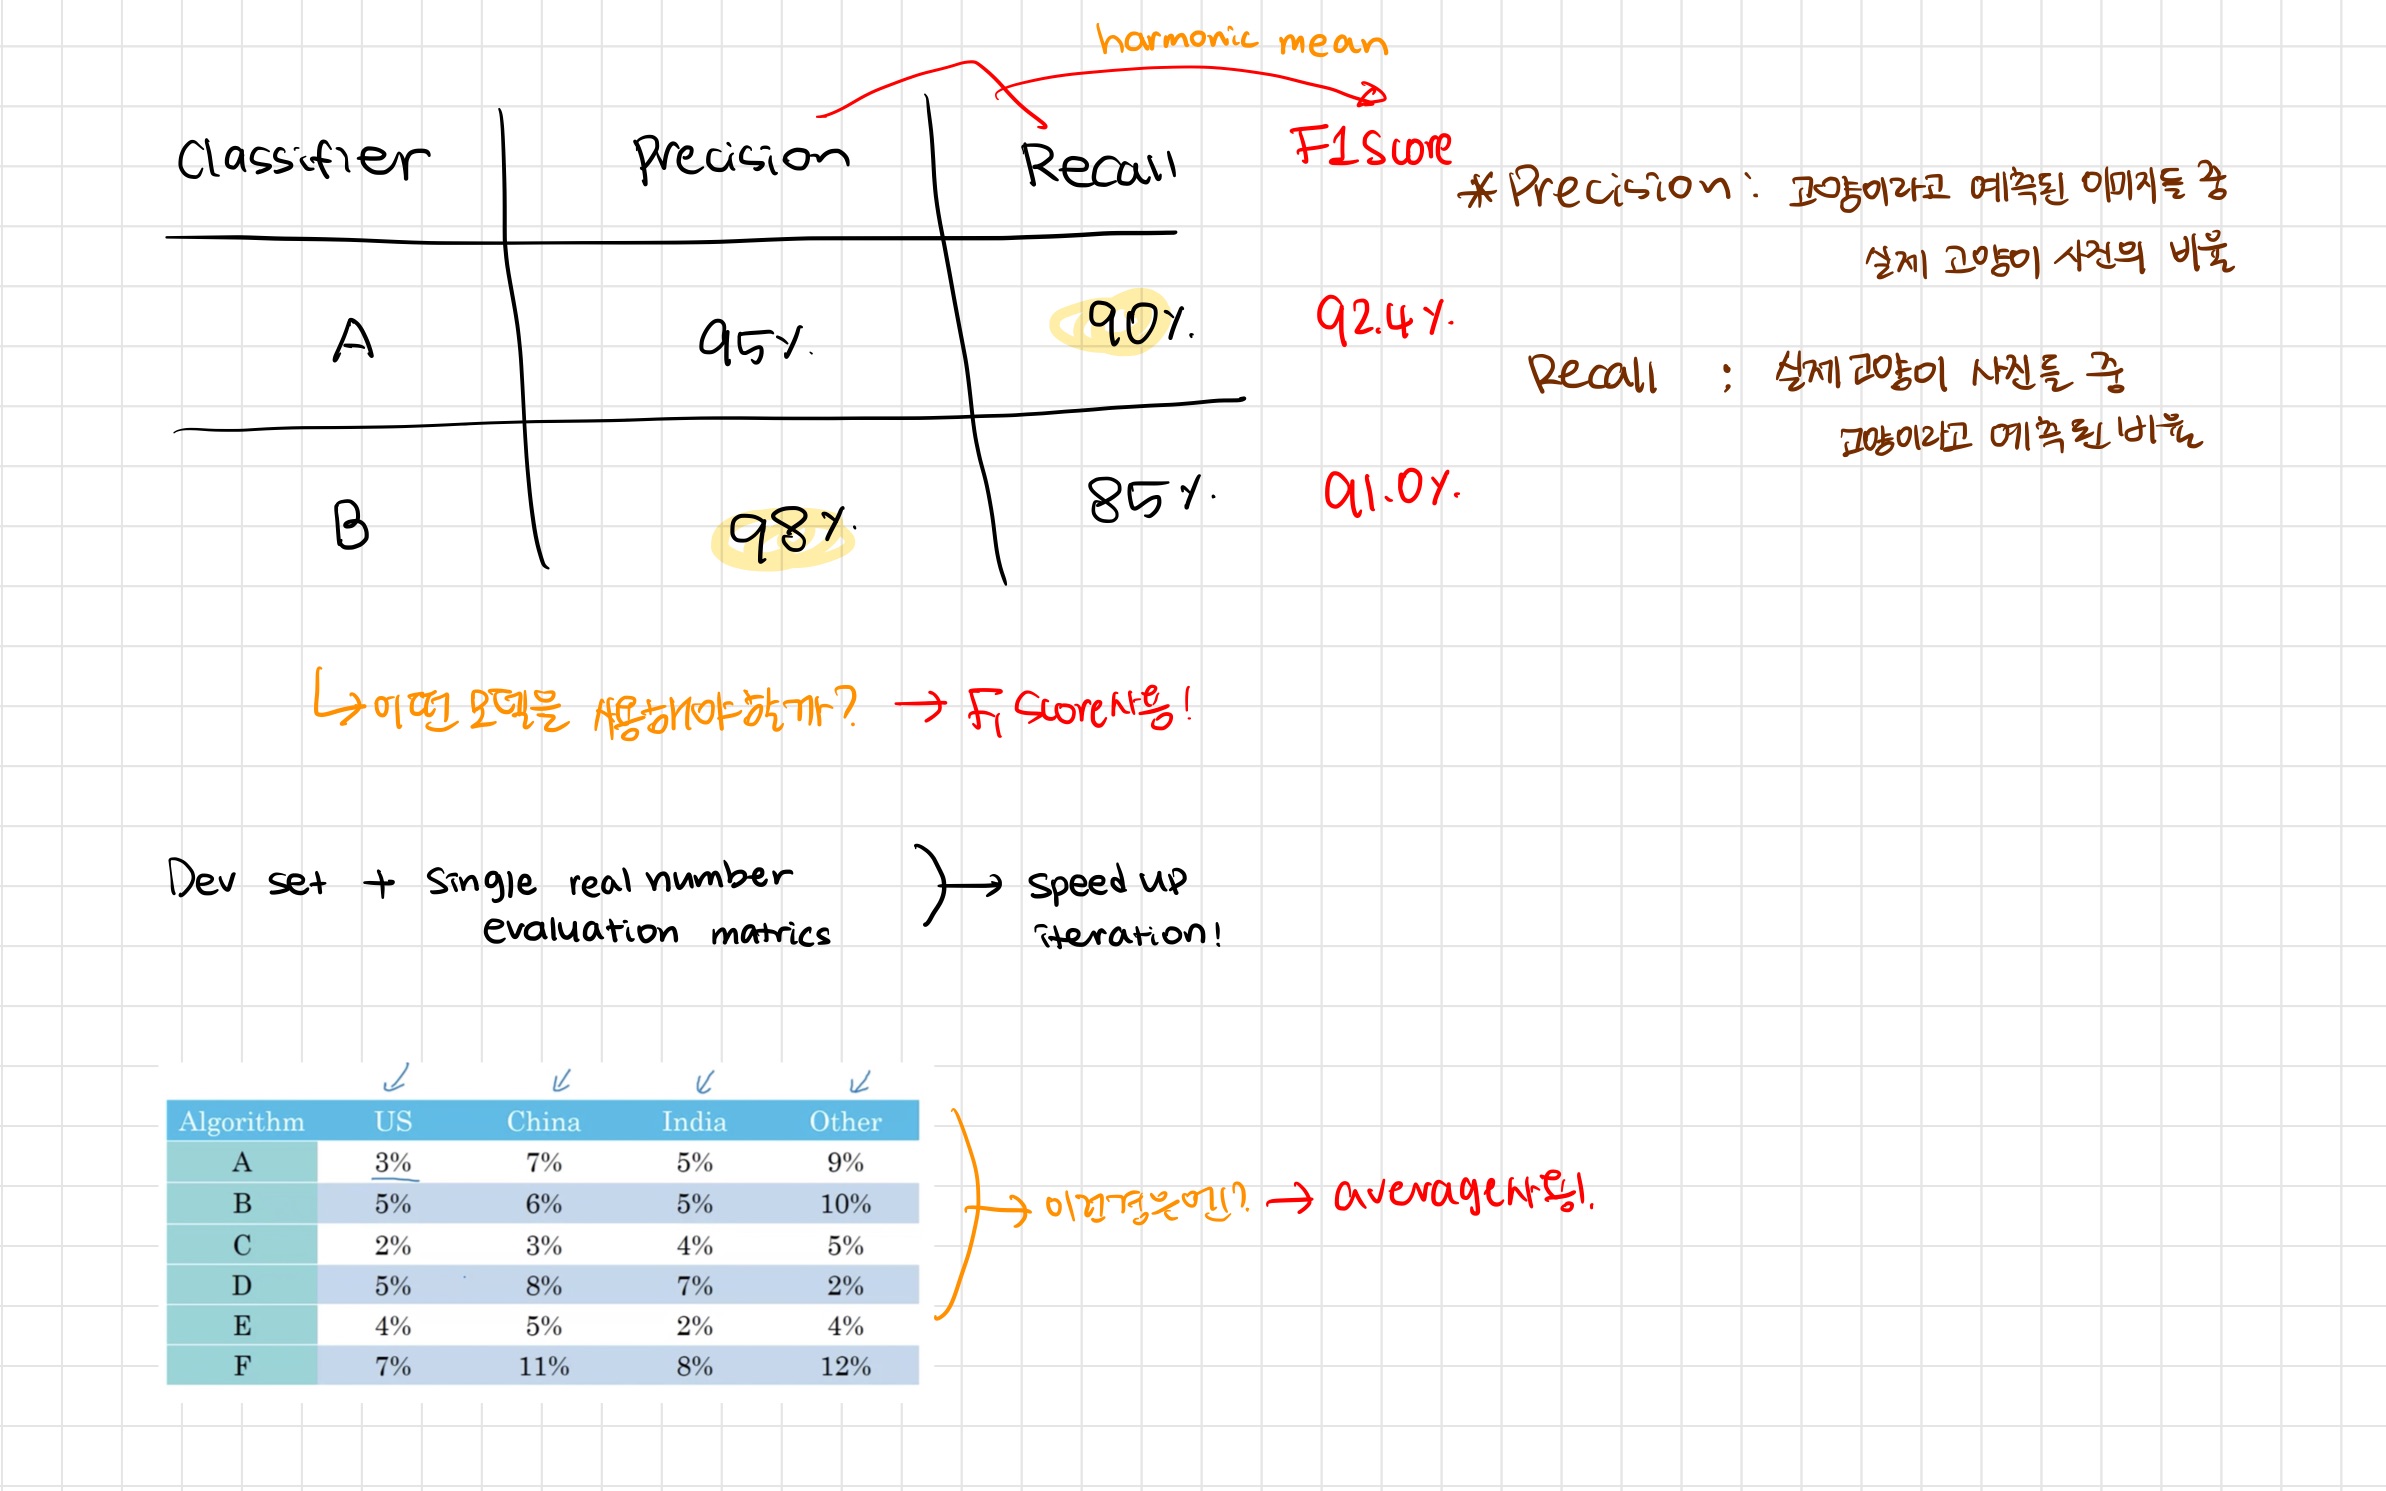 harmonic mean
Classifier Precision Recall F1 Score
A 95% 90% 92.4%
B 98% 85% 91.0%
* Precision : 고양이라고 예측된 이미지들 중
실제 고양이 사진의 비율
Recall : 실제 고양이 사진들 중
고양이라고 예측된 비율
어떤 모델을 사용해야할까? → F1 Score 사용!
Dev set + single real number → speed up
evaluation matrics iteration!
Algorithm US China India Other
A 3% 7% 5% 9%
B 5% 6% 5% 10%
C 2% 3% 4% 5%
D 5% 8% 7% 2%
E 4% 5% 2% 4%
F 7% 11% 8% 12%
→ average 사용!